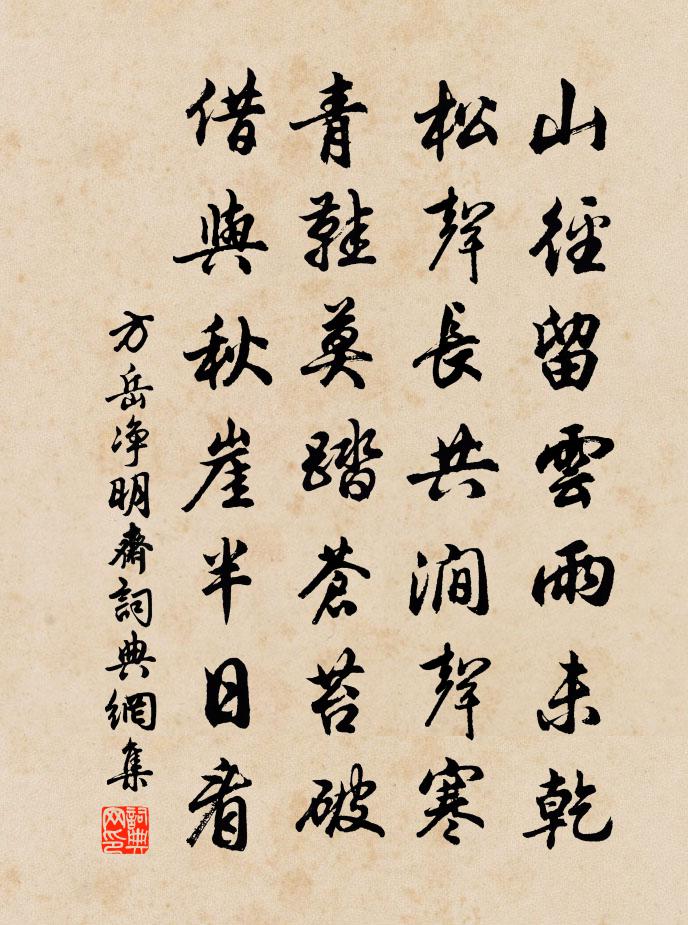 山徑留雲雨未乾
松聲長共澗聲寒
青鞋莫踏蒼苔破
借與秋崖半日看
方岳净明齋詞典網集
詞典網印